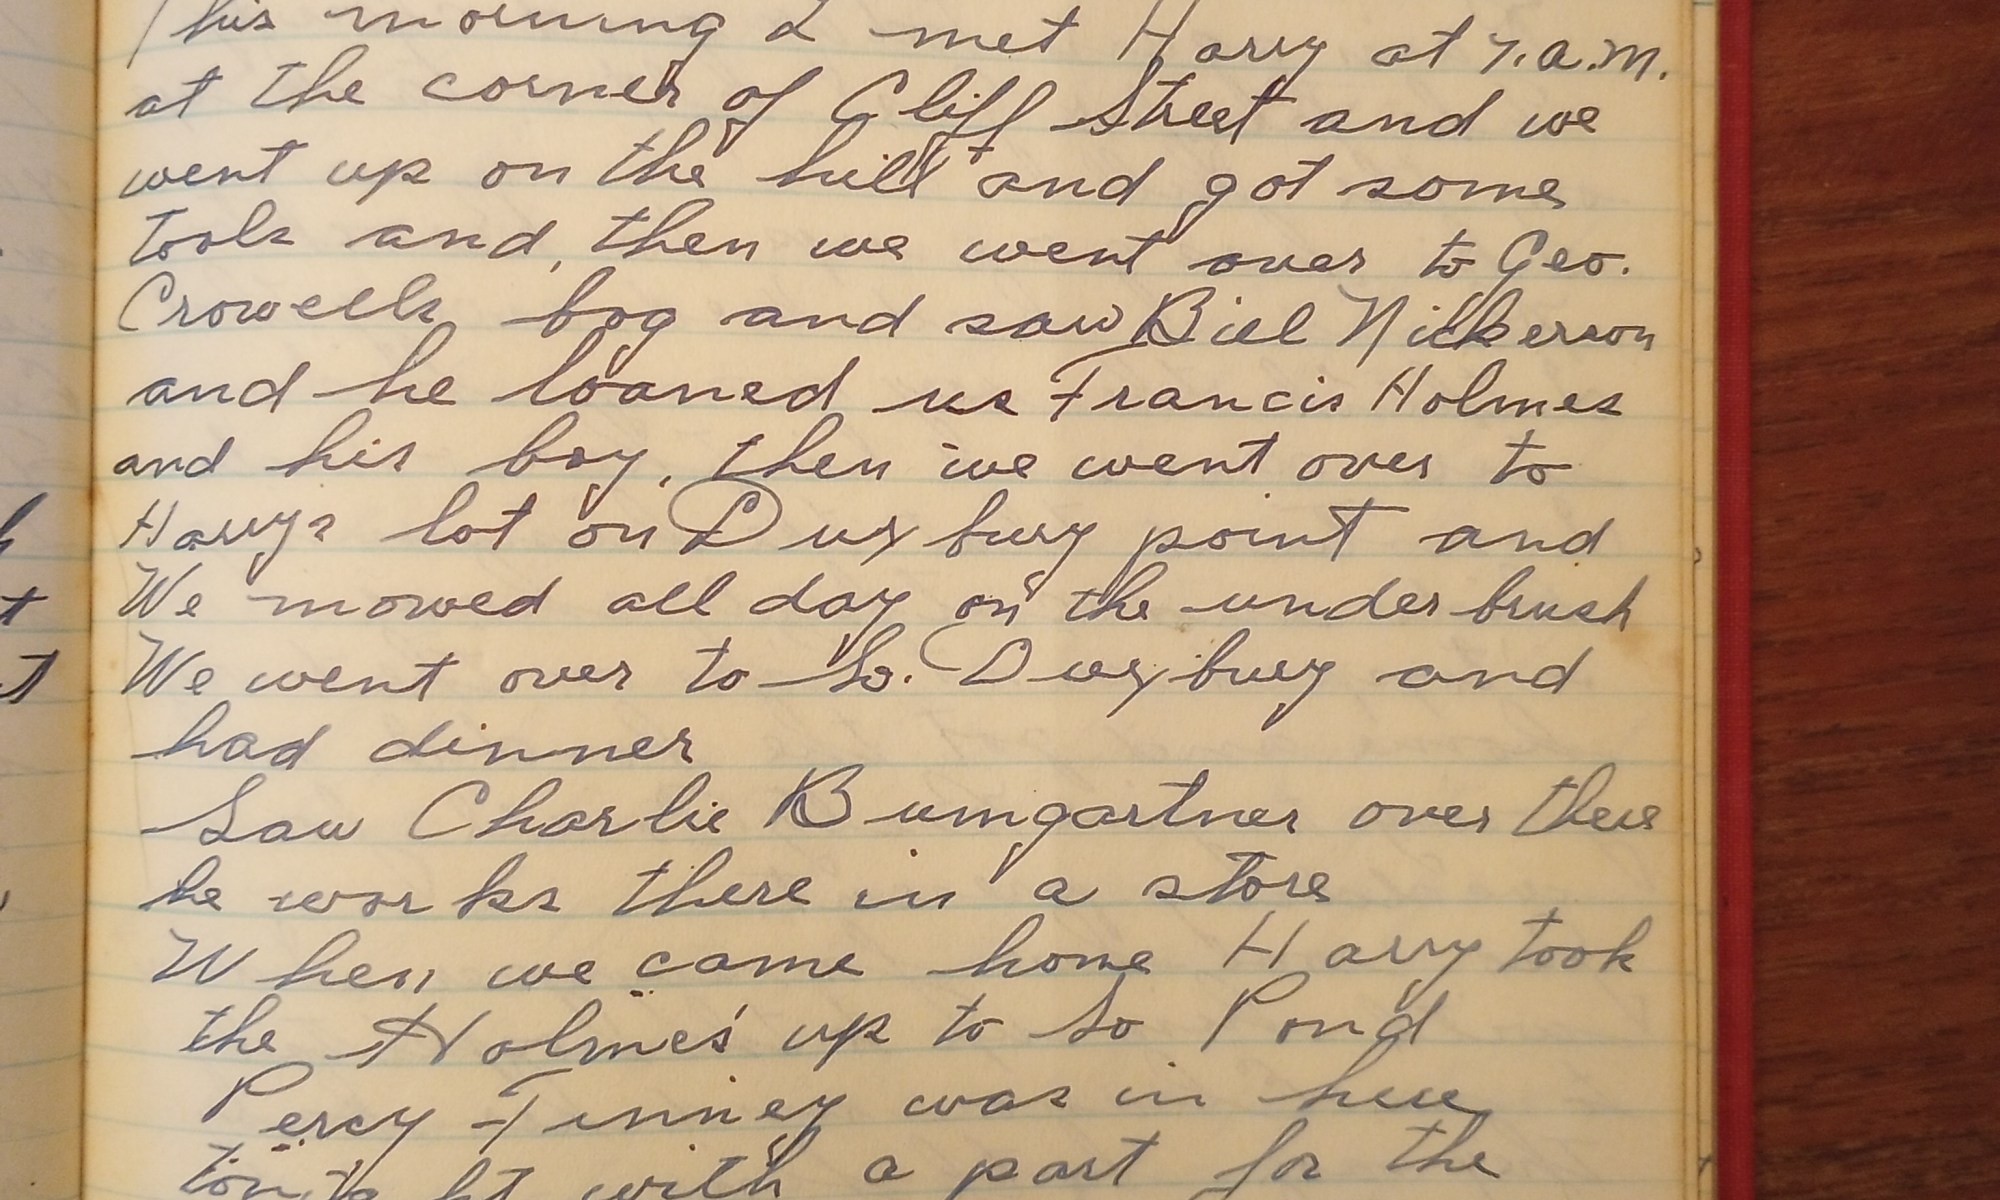 This morning I met Harry at 7.a.m.
at the corner of Cliff Street and we
went up on the hill and got some
tools and, then we went over to Geo.
Crowells bog and saw Bill Nickerson
and he loaned us Francis Holmes
and his boy, then we went over to
Harrys lot on Duxbury point and
We mowed all day on the under brush
We went over to So. Duxbury and
had dinner
Saw Charlie Bumgartner over there
he works there in a store
When we came home Harry took
the Holmes' up to So Pond
Percy Tinney was in here
tonight with a part for the